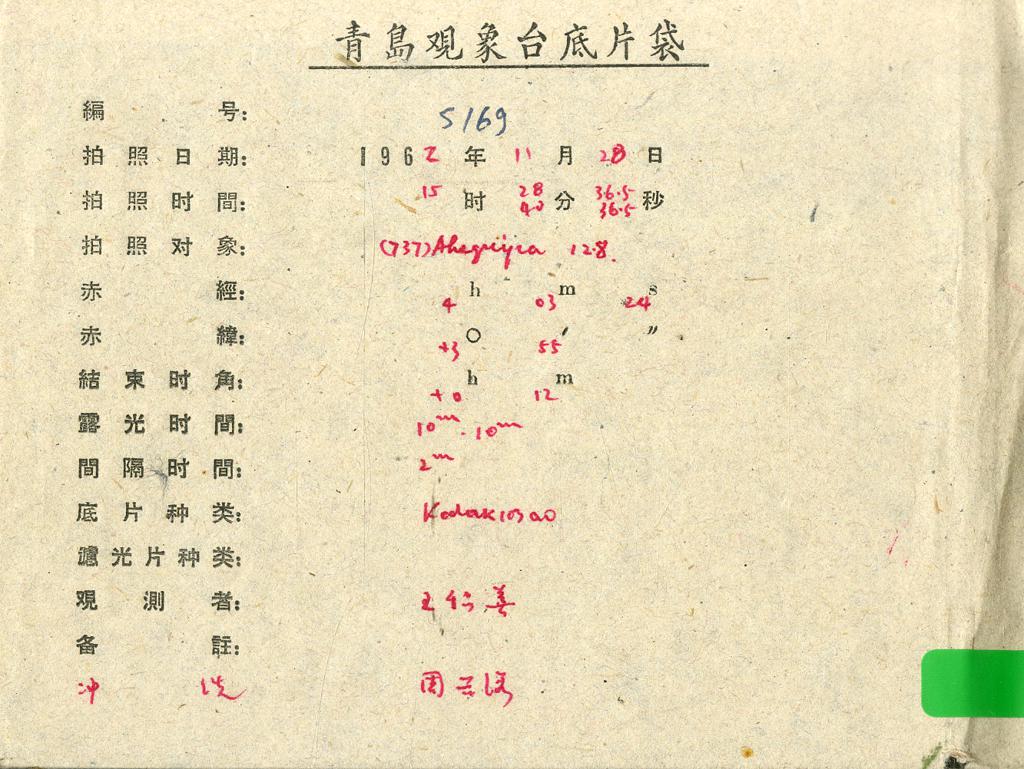 青島观象台底片袋
編 号: S169
拍照日期: 1962年11月28日
拍照时間: 15时28分36.5秒
40 36.5
拍照对象: (737) 12.8.
赤 經: 4h 03m 24s
赤 緯: +3° 55′ ″
結束时角: +0h 12m
露光时間: 10m - 10m
間隔时間: 2m
底片种类: Kodak103a0
濾光片种类:
观測者: 王 善
备 註:
冲 洗 周